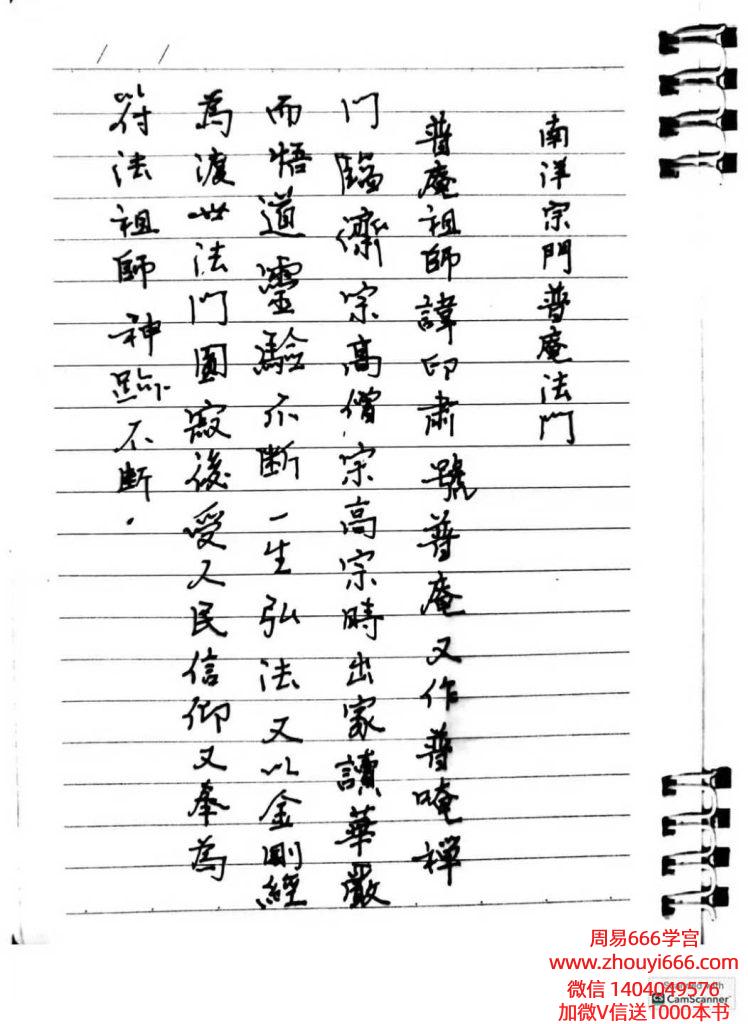 南洋宗門普庵法門
普庵祖師諱印肅號普庵又作普唵禪
門臨濟宗高僧宗高宗時出家讀華嚴
而悟道靈驗不斷一生弘法又以金剛經
為渡世法門圓寂後受人民信仰又奉為
符法祖師神跡不斷.
周易666学宫
www.zhouyi666.com
微信 1404049576
Scanned with
CS CamScanner
加微V信送1000本书